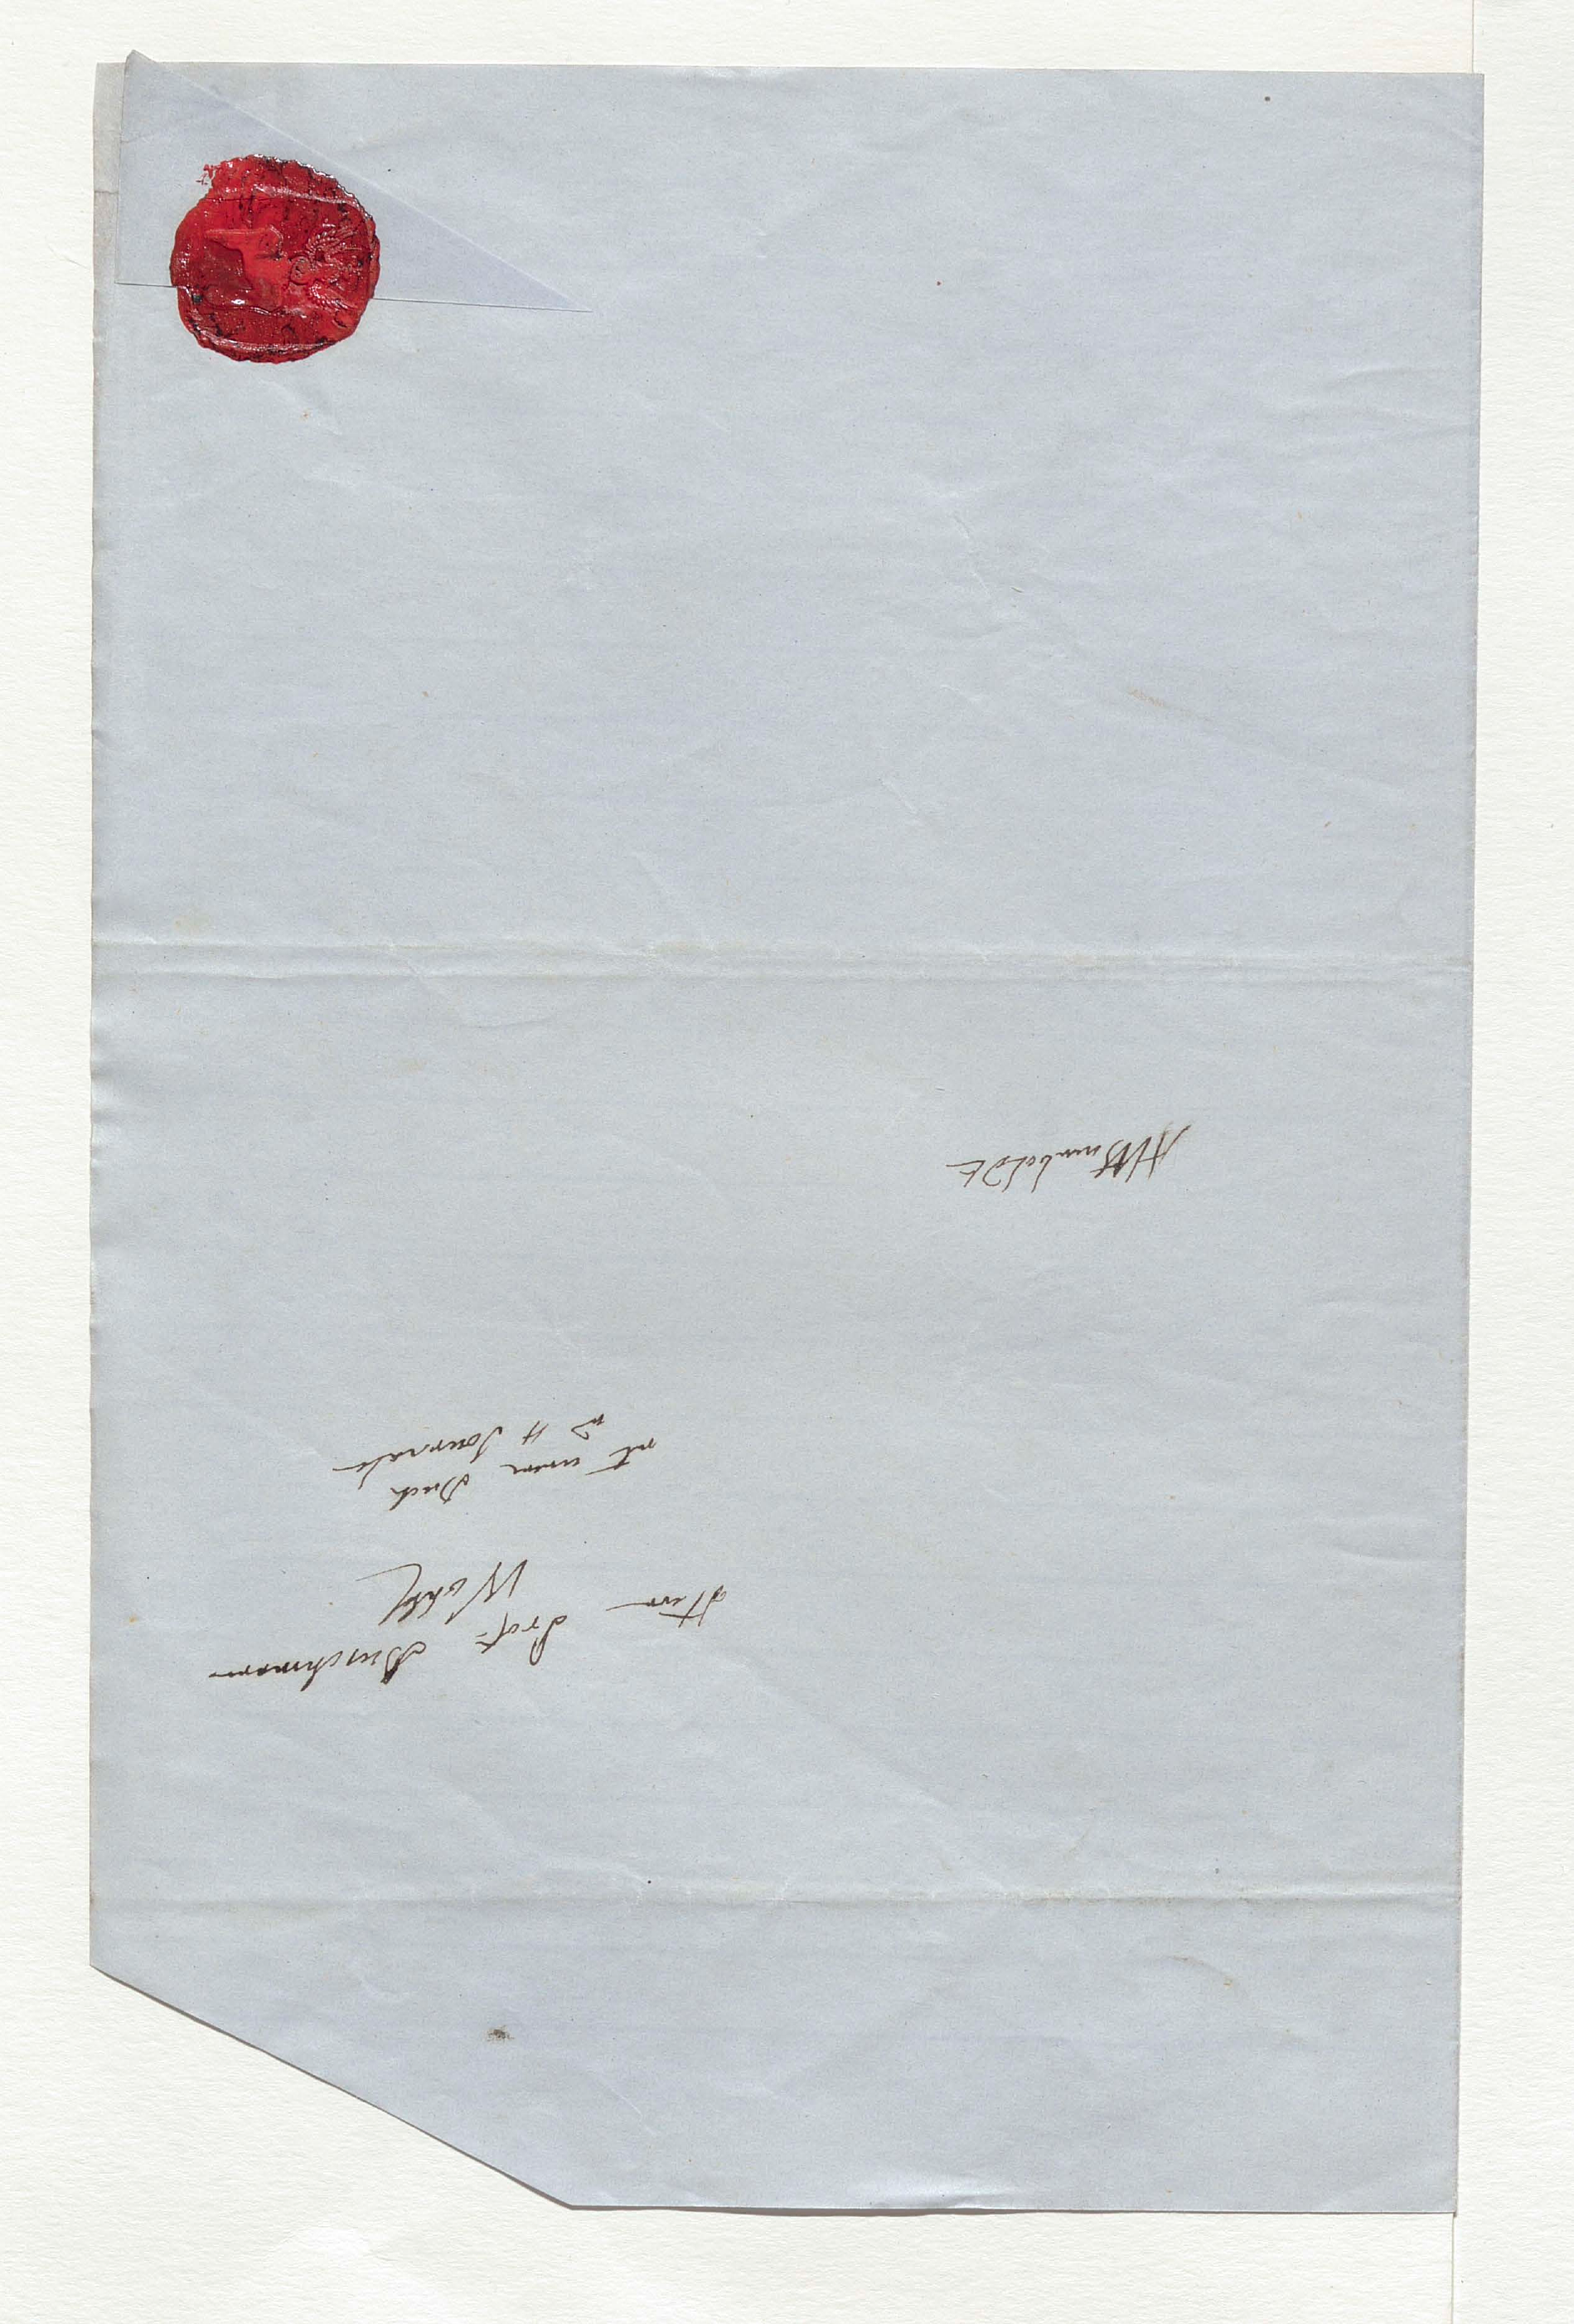 Herrn Prof. Buschmann
Wohlg
einem Buch
4 Journale
AvHumboldt